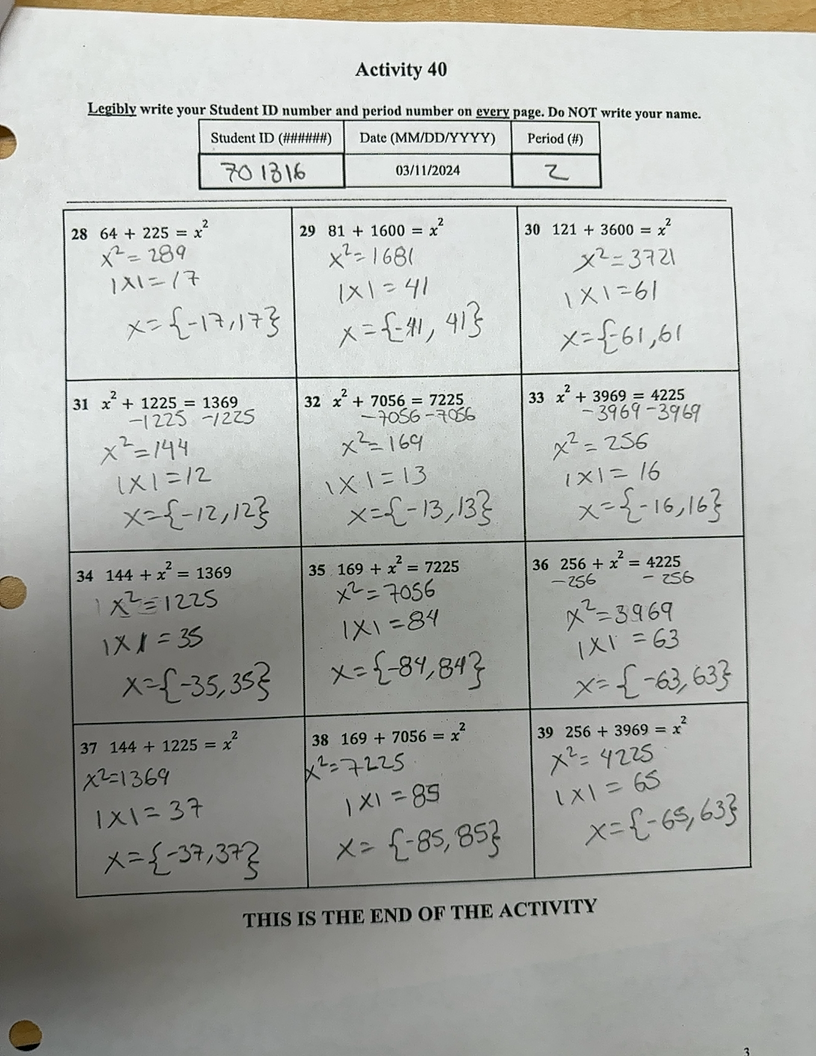 Activity 40
Legibly write your Student ID number and period number on every page. Do NOT write your name.
Student ID (######) Date (MM/DD/YYYY) Period (#)
701316 03/11/2024 2
28 64 + 225 = x²
x² = 289
|x| = 17
x = {-17, 17}
29 81 + 1600 = x²
x² = 1681
|x| = 41
x = {-41, 41}
30 121 + 3600 = x²
x² = 3721
|x| = 61
x = {-61, 61
31 x² + 1225 = 1369
-1225 -1225
x² = 144
|x| = 12
x = {-12, 12}
32 x² + 7056 = 7225
-7056 -7056
x² = 169
|x| = 13
x = {-13, 13}
33 x² + 3969 = 4225
-3969 -3969
x² = 256
|x| = 16
x = {-16, 16}
34 144 + x² = 1369
x² = 1225
|x| = 35
x = {-35, 35}
35 169 + x² = 7225
x² = 7056
|x| = 84
x = {-84, 84}
36 256 + x² = 4225
-256 -256
x² = 3969
|x| = 63
x = {-63, 63}
37 144 + 1225 = x²
x² = 1369
|x| = 37
x = {-37, 37}
38 169 + 7056 = x²
x² = 7225
|x| = 85
x = {-85, 85}
39 256 + 3969 = x²
x² = 4225
|x| = 65
x = {-65, 63}
THIS IS THE END OF THE ACTIVITY
3